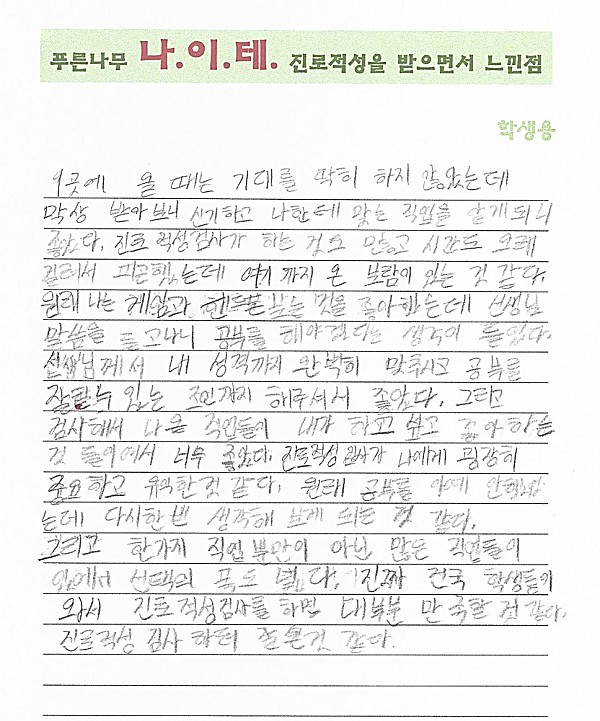 푸른나무 나.이.테. 진로적성을 받으면서 느낀점
학생용
이곳에 올 때는 기대를 딱히 하지 않았는데
막상 받아보니 신기하고 나한테 맞는 직업을 알게되니
좋았다. 진로적성검사가 하는 것도 많고 시간도 오래
걸려서 피곤했는데 여기까지 온 보람이 있는 것 같다.
원래 나는 게임과 핸드폰 하는 것을 좋아했는데 선생님
말씀을 듣고나니 공부를 해야겠다는 생각이 들었다.
선생님께서 내 성격까지 완벽히 맞추시고 공부를
잘할수 있는 조언까지 해주셔서 좋았다. 그리고
검사해서 나온 직업들이 내가 하고 싶고 좋아하는
것 들이어서 너무 좋았다. 진로적성 검사가 나에게 굉장히
중요하고 유익한것 같다. 원래 공부를 아예 안했었
는데 다시한번 생각해 보게 되는 것 같다.
그리고 한가지 직업뿐만이 아닌 많은 직업들이
있어서 선택의 폭도 넓다. 진짜 전국 학생들이
와서 진로적성검사를 하면 대부분 만족할 것 같다.
진로적성 검사 하러 잘 온것 같다.